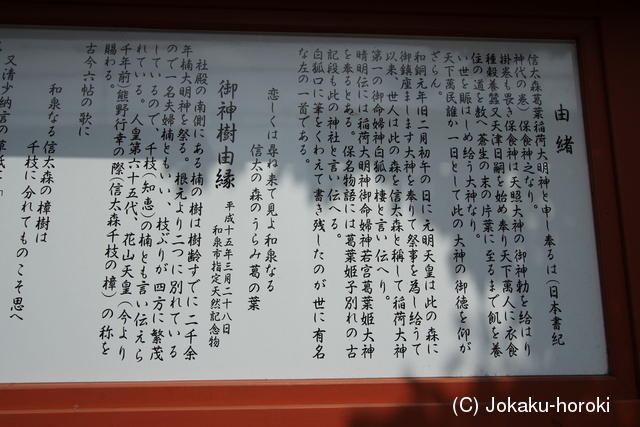 由緒
信太森葛葉稲荷大明神と申し奉るは(日本書紀
神代の巻)保食神之なり。
掛巻も畏き保食神は天照大神の御神勅を給はり
種穀養蚕又天津日嗣を始め奉り天下萬人に衣食
住の道を教へ蒼生の末の片葉に至るまで飢を養
い世を賑はしめ給う大神なり。
天下萬民誰か一日として此の大神の御徳を仰が
ざらん。
和銅元年旧二月初午の日に元明天皇は此の森に
御鎮座まします大神を奉りて祭事を為し給うて
以来、世人は此の森を信太森と称して稲荷大神
第一の御命婦神白狐の棲と言い伝へり。
晴明伝には稲荷大明神御命婦神若宮葛葉姫大神
を奉るとある。保名物語には葛葉姫子別れの古
記段も此の神社と言い伝へる。
白狐口に筆をくわえて書き残したのが世に有名
な左の一首である。
恋しくは尋ね来て見よ和泉なる
信太の森のうらみ葛の葉
御神樹由縁
平成十五年三月二十八日
和泉市指定天然記念物
社殿の南側にある楠の樹は樹齢すでに二千余
年楠大明神を祭る。根元より二つに別れている
ので一名夫婦楠ともいい、枝ぶりが四方に繁茂
しているので、千枝(知恵)の楠とも言い伝えら
れている。人皇第六十五代、花山天皇(今より
千年前)熊野行幸の際(信太森千枝の樟)の称を
賜わる。
古今六帖の歌に
和泉なる信太の森の樟樹は
千枝に分れてものこそ思へ
又清少納言の草紙に「
(C) Jokaku-horoki